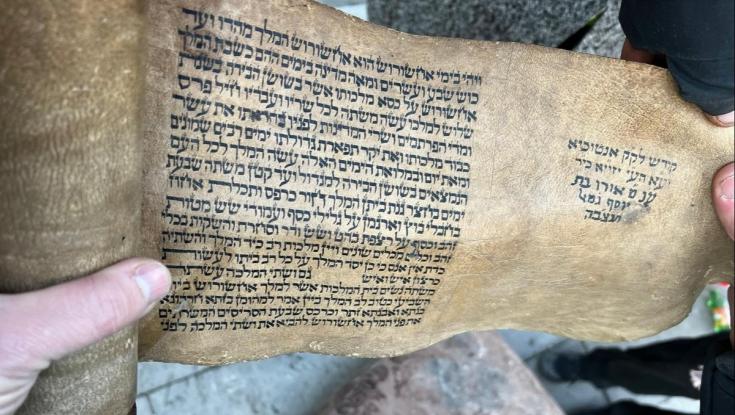 קודש לקק אנטוכיא
יוסף
ויהי בימי אחשורוש הוא אחשורוש המלך מהדו ועד
כוש שבע ועשרים ומאה מדינה בימים ההם כשבת המלך
אחשורוש על כסא מלכותו אשר בשושן הבירה בשנת
שלוש למלכו עשה משתה לכל שריו ועבדיו חיל פרס
ומדי הפרתמים ושרי המדינות לפניו בהראתו את עשר
כבוד מלכותו ואת יקר תפארת גדולתו ימים רבים שמונים
ומאת יום ובמלואת הימים האלה עשה המלך לכל העם
הנמצאים בשושן הבירה למגדול ועד קטן משתה שבעת
ימים בחצר גנת ביתן המלך חור כרפס ותכלת אחוז
בחבלי בוץ וארגמן על גלילי כסף ועמודי שש מטות
זהב וכסף על רצפת בהט ושש ודר וסחרת והשקות בכלי
זהב וכלים מכלים שונים ויין מלכות רב כיד המלך והשתיה
כדת אין אנס כי כן יסד המלך על כל רב ביתו לעשות
כרצון איש ואיש גם ושתי המלכה עשתה
משתה נשים בית המלכות אשר למלך אחשורוש ביום
השביעי כטוב לב המלך ביין אמר למהומן בזתא חרבונא
בגתא ואבגתא זתר וכרכס שבעת הסריסים המשרתים
את פני המלך אחשורוש להביא את ושתי המלכה לפני